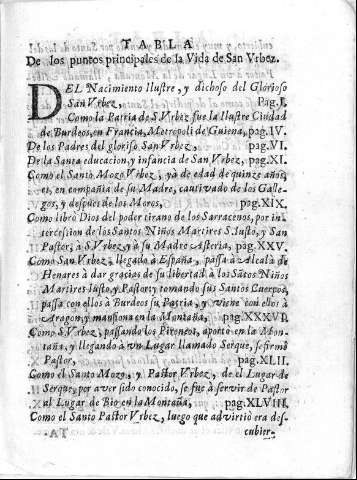 TABLA
De los puntos principales de la Vida de San Vrbez.
DEL Nacimiento Ilustre, y dichoso del Glorioso
San Vrbez, Pag.I.
Como la Patria de S Vrbez fue la Ilustre Ciudad
de Burdeos, en Francia, Metropoli de Guiena, pag.IV.
De los Padres del glorioso San Vrbez, pag.VI.
De la Santa educacion, y infancia de San Vrbez, pag.XI.
Como el Santo Mozo Vrbez, yà de edad de quinze años,
es, en compañia de su Madre, cautivado de los Galle-
gos, y despues de los Moros, pag.XIX.
Como librò Dios del poder tirano de los Sarracenos, por in-
tercession de los Santos Niños Martires S. Iusto, y San
Pastor, à S. Vrbez, y à su Madre Asteria, pag.XXV.
Como San Vrbez, llegado à España, passa à Alcalà de
Henares à dar gracias de su libertad à los Sātos Niños
Martires Iusto, y Pastor; y tomando sus Santos Cuerpos,
passa con ellos à Burdeos su Patria, y viene con ellos à
Aragon, y mansiona en la Montaña, pag.XXXVI.
Como S. Vrbez, passando los Pireneos, aportò en la Mon-
taña, y llegando à vn Lugar llamado Serque, se firmò
Pastor, pag.XLII.
Como el Santo Mozo, y Pastor Vrbez, de el Lugar de
Serque, por aver sido conocido, se fue à servir de Pastor
al Lugar de Bio en la Montaña, pag.XLVIII.
Como el Santo Pastor Vrbez, luego que advirtiò era des-
cubier-
TA-